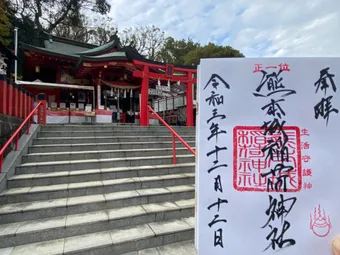 奉拝
生活守護神
正一位
熊本城稲荷神社
令和三年十二月十二日